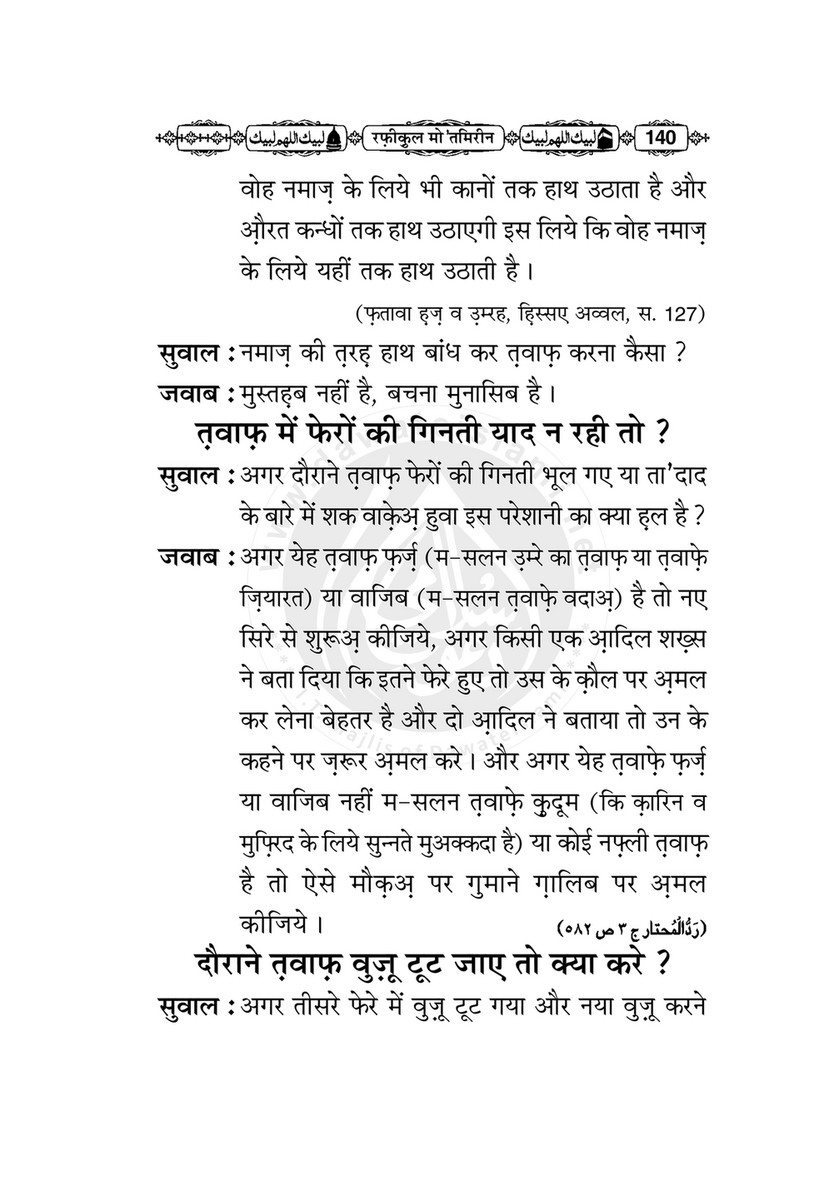 لبيك اللهم لبيك रफ़ीकुल मो 'तमिरीन لبيك اللهم لبيك 140
वोह नमाज़ के लिये भी कानों तक हाथ उठाता है और
औ़रत कन्धों तक हाथ उठाएगी इस लिये कि वोह नमाज़
के लिये यहीं तक हाथ उठाती है ।
(फ़तावा ह़ज़ व उ़म्रह, हि़स्सए अव्वल, स. 127)
सुवाल : नमाज़ की त़रह़ हाथ बांध कर त़वाफ़ करना कैसा ?
जवाब : मुस्तह़ब नहीं है, बचना मुनासिब है ।
त़वाफ़ में फेरों की गिनती याद न रही तो ?
सुवाल : अगर दौराने त़वाफ़ फेरों की गिनती भूल गए या ता'दाद
के बारे में शक वाके़अ़ हुवा इस परेशानी का क्या ह़ल है ?
जवाब : अगर येह त़वाफ़ फ़र्ज़ (म-सलन उ़म्रे का त़वाफ़ या त़वाफ़े
ज़ियारत) या वाजिब (म-सलन त़वाफ़े वदाअ़) है तो नए
सिरे से शुरूअ़ कीजिये, अगर किसी एक आ़दिल शख़्स
ने बता दिया कि इतने फेरे हुए तो उस के क़ौल पर अ़मल
कर लेना बेहतर है और दो आ़दिल ने बताया तो उन के
कहने पर ज़रूर अ़मल करे । और अगर येह त़वाफ़े फ़र्ज़
या वाजिब नहीं म-सलन त़वाफ़े क़ुदूम (कि क़ारिन व
मुफ़्रिद के लिये सुन्नते मुअक्कदा है) या कोई नफ़्ली त़वाफ़
है तो ऐसे मौक़अ़ पर गुमाने ग़ालिब पर अ़मल
कीजिये । (رَدُّالْمُحتار ج ٣ ص ٥٨٢)
दौराने त़वाफ़ वुज़ू टूट जाए तो क्या करे ?
सुवाल : अगर तीसरे फेरे में वुज़ू टूट गया और नया वुज़ू करने